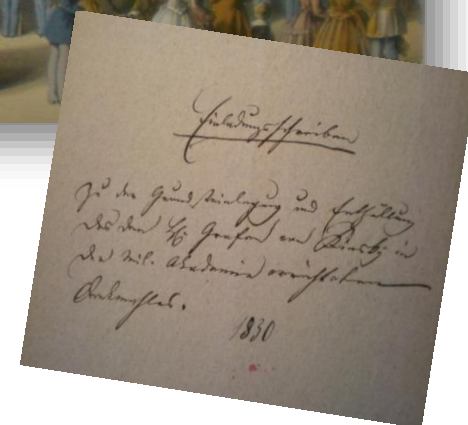 Einladungsschreiben
zu der Grundsteinlegung und Enthüllung
des dem Grafen von Kinsky in
der Mil. Akademie errichteten
Denkmahles.
1830